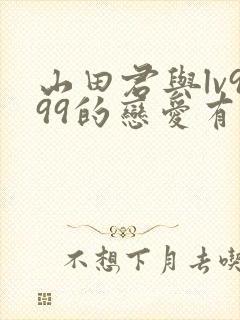 山田君與lv9
99的戀愛有
不想下月去喫